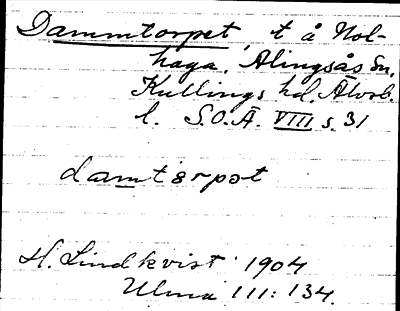 Dammtorpet, t å Hol-
haga, Alingsås sn,
Kullings hd. Älvsb.
l. S.O.Ä. VIII s. 31
damtorpet
H. Lindkvist 1904
Ulma 111: 134.